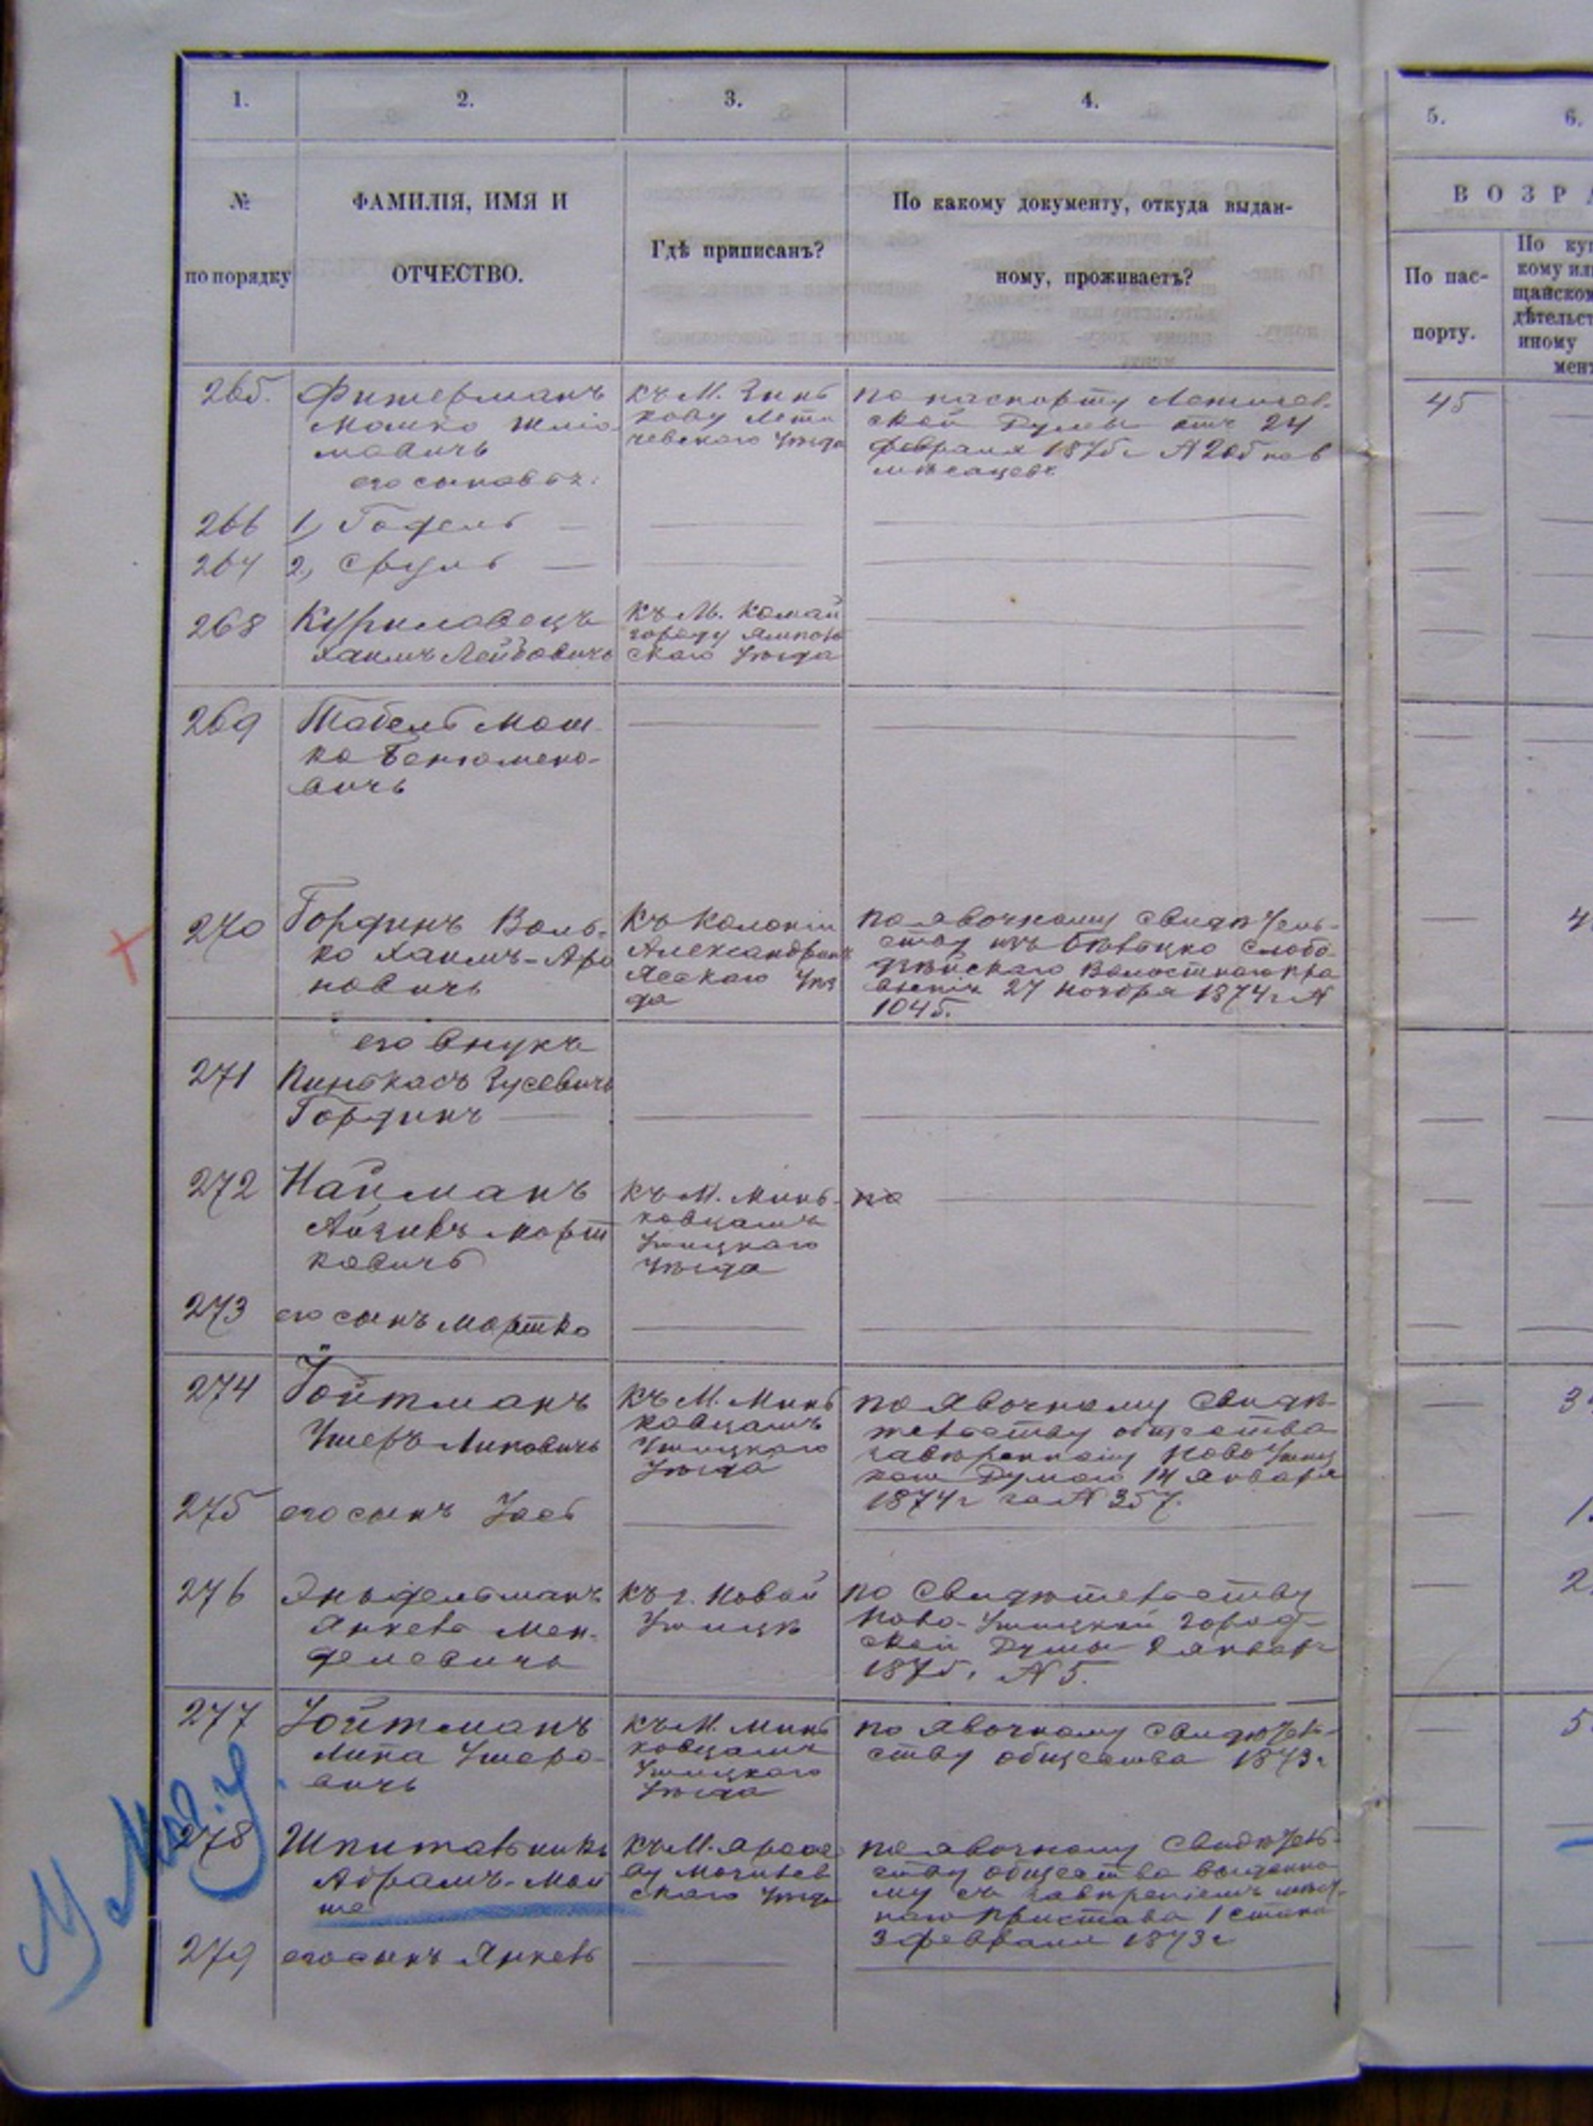 1. 2. 3. 4. 5. 6.
№ по порядку
ФАМИЛІЯ, ИМЯ И
ОТЧЕСТВО.
Гдѣ приписанъ?
По какому документу, откуда выдан-
ному, проживаетъ?
ВОЗРА
По пас-
порту.
По куп
кому или
щанском
дѣтельст
иному
мент
265.
Фишерманъ
Мошко Шлio-
мовичъ
его сыновья:
къ М. Зинь
кову Лети
чевскаго Уѣзда
по паспорту Летичев.
ской Думы отъ 24
февраля 1875 г №
мѣсяцевъ
45
266 1, Гофель
267 2, Сруль
268
Куриловецъ
Хаимъ Лейбовичъ
къ М. Комай
городу Ямполь
скаго Уѣзда
269
Табель Мош
ко Беньомено-
вичъ
270
Гординъ Воль-
ко Хаимъ-Аро
новичъ
къ Колоніи
Александр
Ясскаго Уѣз
да
по явочному свидѣтель-
ству изъ слобо
дзѣйскаго Волостного пра
вленія 27 ноября 1874 г №
1045.
его внукъ
271
Пинькасъ Зусевичъ
Гординъ
272
Найманъ
Айзикъ Морт
ковичъ
къ М. Минь-
ковцамъ
Ушицкаго
Уѣзда
по
273 его сынъ Мортко
274
Гойтманъ
Ушеръ Липовичъ
къ М. Минь
ковцамъ
Ушицкаго
Уѣзда
по явочному свидѣ-
тельству общества
завѣренному Ново Ушиц
кой Думою 14 Января
1874 г за № 357.
275 его сынъ Іось
276
Эньдельманъ
Янкель Мен-
делевичъ
къ г. Новой
Ушицѣ
по свидѣтельству
Ново-Ушицкой город
ской Думы 2 январ
1875, № 5.
277
Гойтманъ
Липа Ушеро-
вичъ
къ М. Минь
ковцамъ
Ушицкаго
Уѣзда
по явочному свидѣтель-
ству общества 1873 г
278
Шпитальникъ
Абрамъ-Мой
ше
къ М. Ярыше
ву Могилев
скаго Уѣзда
по явочному свидѣтель-
ству общества выданно
му съ завѣреніемъ
Пристава 1 стана
3 февраля 1873 г
279 его сынъ Янкель